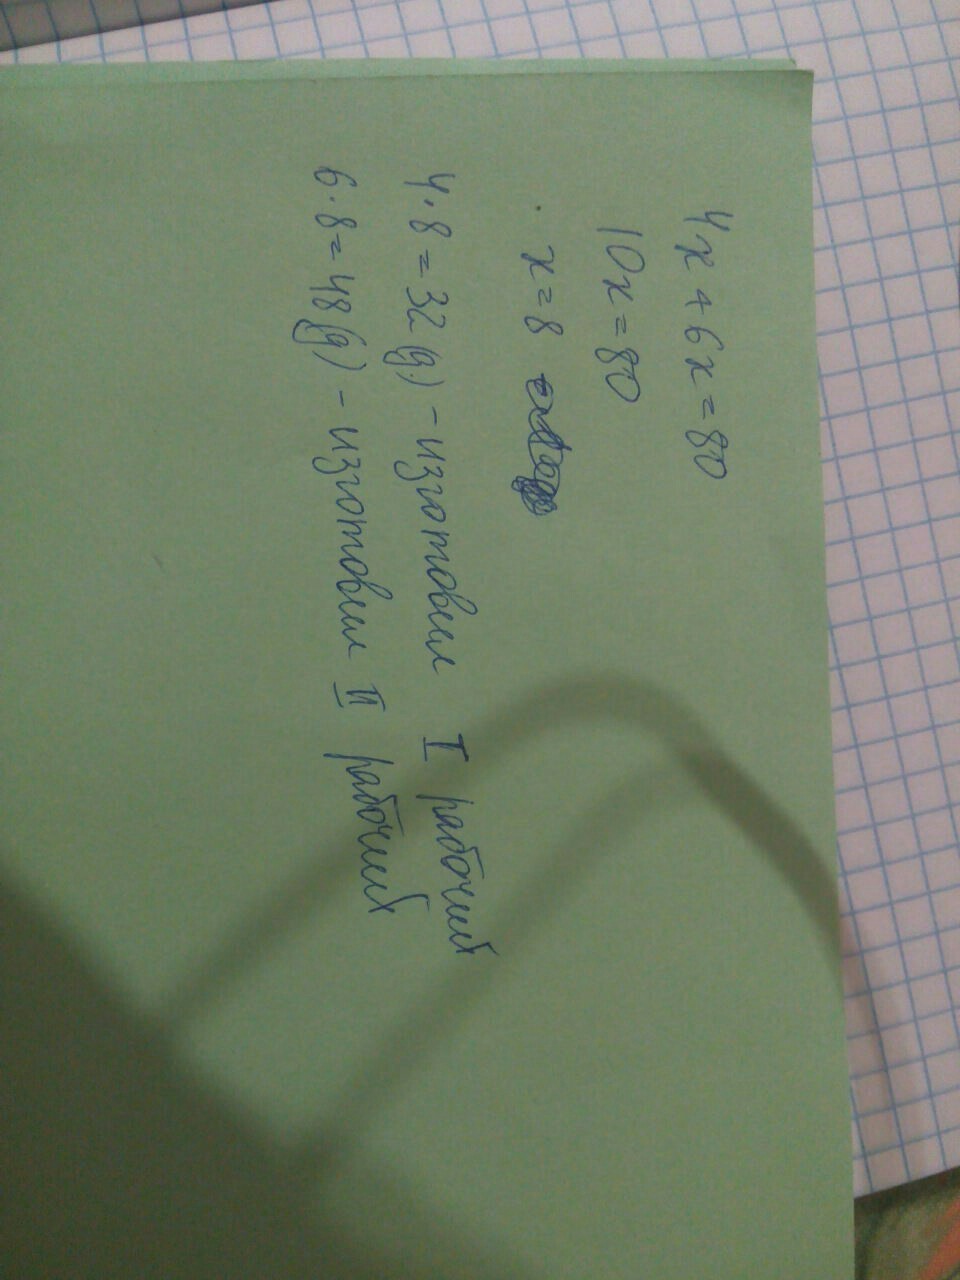 4x + 6x = 80
10x = 80
x = 8
4·8 = 32 (g.) – изготовил I рабочий
6·8 = 48 (g) – изготовил II рабочий